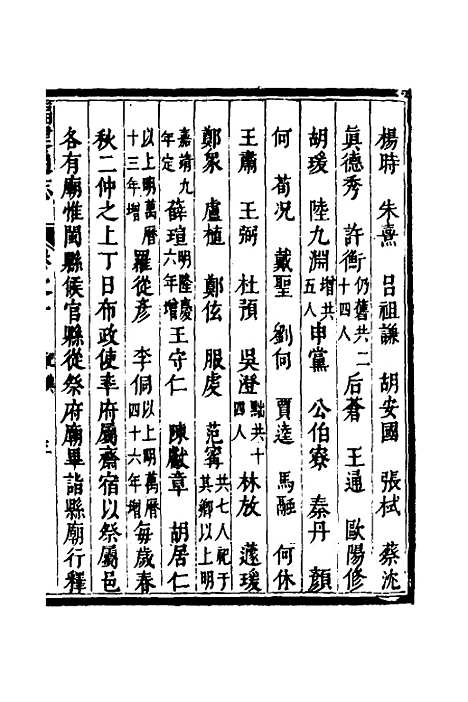 楊時　朱熹　呂祖謙　胡安國　張栻　蔡沈
眞德秀　許衡仍舊共二十四人　后蒼　王通　歐陽修
胡瑗　陸九淵增共五人　申黨　公伯寮　秦丹　顔
何　荀況　戴聖　劉向　賈逵　馬融　何休
王肅　王弼　杜預　吳澄黜共十四人　林放　蘧瑗
鄭衆　盧植　鄭玄　服虔　范甯共七人祀于其鄉以上明
嘉靖九年定　薛瑄明隆慶六年增　王守仁　陳獻章　胡居仁
以上明萬曆十三年增　羅從彥　李侗以上明萬曆四十六年增　每歲春
秋二仲之上丁日布政使率府屬齋宿以祭屬邑
各有廟惟閩縣候官縣從祭府廟畢詣縣廟行釋